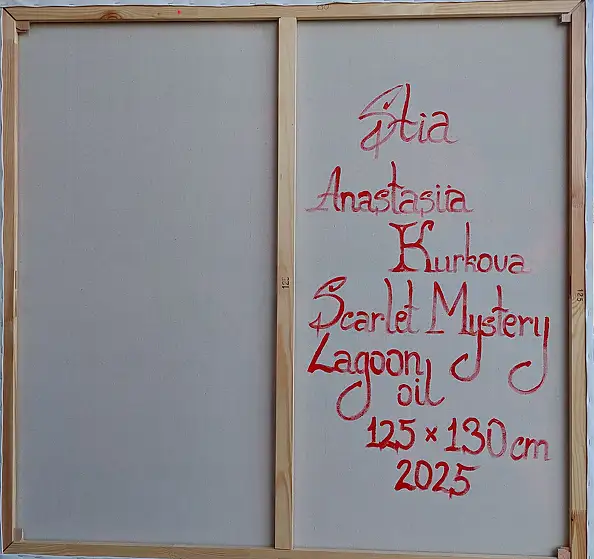 Stia
Anastasiia
Kurkova
Scarlet Mystery
Lagoon
oil
125 × 130 cm
2025
125
125